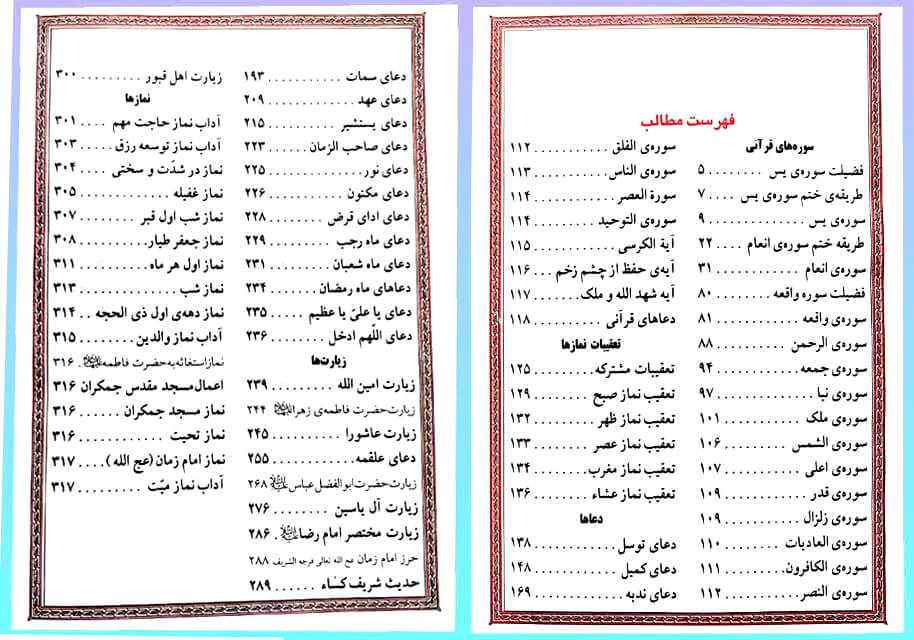 فهرست مطالب
سوره‌های قرآنی
فضیلت سوره‌ی یس ........ ۵
طریقه‌ی ختم سوره‌ی یس .... ۷
سوره‌ی یس .............. ۹
طریقه ختم سوره‌ی انعام .... ۲۲
سوره‌ی انعام ........... ۳۱
فضیلت سوره واقعه ........ ۸۰
سوره‌ی واقعه ........... ۸۱
سوره‌ی الرحمن .......... ۸۸
سوره‌ی جمعه ........... ۹۴
سوره‌ی نبا ............. ۹۷
سوره‌ی ملک ........... ۱۰۱
سوره‌ی الشمس ......... ۱۰۶
سوره‌ی اعلی ........... ۱۰۷
سوره‌ی قدر ............ ۱۰۹
سوره‌ی زلزال .......... ۱۰۹
سوره‌ی العادیات ........ ۱۱۰
سوره‌ی الکافرون ........ ۱۱۱
سوره‌ی النصر .......... ۱۱۲
سوره‌ی الفلق ........... ۱۱۲
سوره‌ی الناس .......... ۱۱۳
سورة العصر ............ ۱۱۴
سوره‌ی التوحید ......... ۱۱۴
آیة الکرسی ............ ۱۱۵
آیه‌ی حفظ از چشم زخم ... ۱۱۶
آیه شهد الله و ملک ....... ۱۱۷
دعاهای قرآنی .......... ۱۱۸
تعقیبات نمازها
تعقیبات مشترکه ......... ۱۲۵
تعقیب نماز صبح ......... ۱۲۹
تعقیب نماز ظهر ......... ۱۳۲
تعقیب نماز عصر ........ ۱۳۳
تعقیب نماز مغرب ........ ۱۳۴
تعقیب نماز عشاء ........ ۱۳۶
دعاها
دعای توسل ............ ۱۳۸
دعای کمیل ............ ۱۴۸
دعای ندبه ............. ۱۶۹
دعای سمات ........... ۱۹۳
دعای عهد ............. ۲۰۹
دعای یستشیر .......... ۲۱۵
دعای صاحب الزمان ...... ۲۲۳
دعای نور .............. ۲۲۵
دعای مکنون ........... ۲۲۶
دعای ادای قرض ........ ۲۲۸
دعای ماه رجب ......... ۲۲۹
دعای ماه شعبان ........ ۲۳۱
دعاهای ماه رمضان ....... ۲۳۴
دعای یا علیّ یا عظیم ..... ۲۳۵
دعای اللّهم ادخل ........ ۲۳۶
زیارت‌ها
زیارت امین الله ......... ۲۳۹
زیارت حضرت فاطمه‌ی زهرا ۲۴۴
زیارت عاشورا .......... ۲۴۵
دعای علقمه ........... ۲۵۵
زیارت حضرت ابوالفضل عباس ۲۶۸
زیارت آل یاسین ........ ۲۷۶
زیارت مختصر امام رضا . ۲۸۶
حرز امام زمان عج الله تعالی فرجه الشریف ۲۸۸
حدیث شریف کساء ...... ۲۸۹
زیارت اهل قبور ......... ۳۰۰
نمازها
آداب نماز حاجت مهم .... ۳۰۱
آداب نماز توسعه رزق ..... ۳۰۳
نماز در شدّت و سختی .... ۳۰۴
نماز غفیله ............. ۳۰۵
نماز شب اول قبر ....... ۳۰۷
نماز جعفر طیار .......... ۳۰۸
نماز اول هر ماه ......... ۳۱۱
نماز شب .............. ۳۱۳
نماز دهه‌ی اول ذی الحجه .. ۳۱۴
آداب نماز والدین ........ ۳۱۵
نماز استغاثه به حضرت فاطمه . ۳۱۶
اعمال مسجد مقدس جمکران ۳۱۶
نماز مسجد جمکران ...... ۳۱۶
نماز تحیت ............. ۳۱۶
نماز امام زمان (عج الله) .... ۳۱۷
آداب نماز میّت ......... ۳۱۷